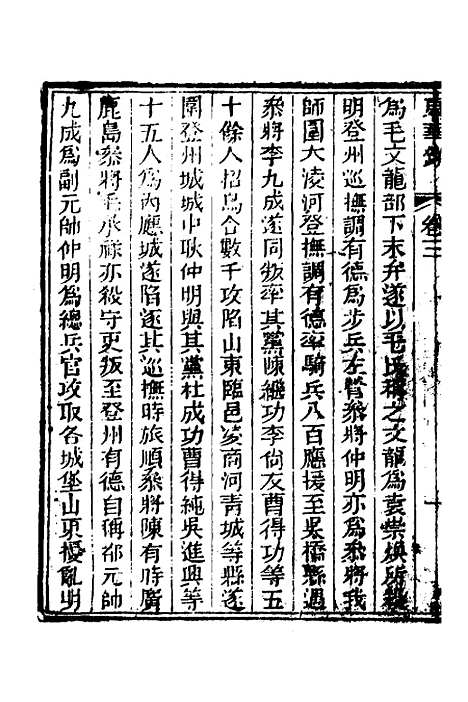 東華錄　卷三
爲毛文龍部下末弁遂以毛氏稱之文龍爲袁崇煥所殺
明登州巡撫調有德爲步兵左營叅將仲明亦爲叅將我
師圍大凌河登撫調有德率騎兵八百應援至吳橋縣遇
叅將李九成遂同叛率其黨陳繼功李尙友曹得功等五
十餘人招烏合數千攻陷山東臨邑凌商河青城等縣遂
圍登州城城中耿仲明與其黨杜成功曹得純吳進興等
十五人爲內應城遂陷逐其巡撫時旅順叅將陳有時廣
鹿島叅將毛承祿亦殺守吏叛至登州有德自稱都元帥
九成爲副元帥仲明爲總兵官攻取各城堡山東擾亂明